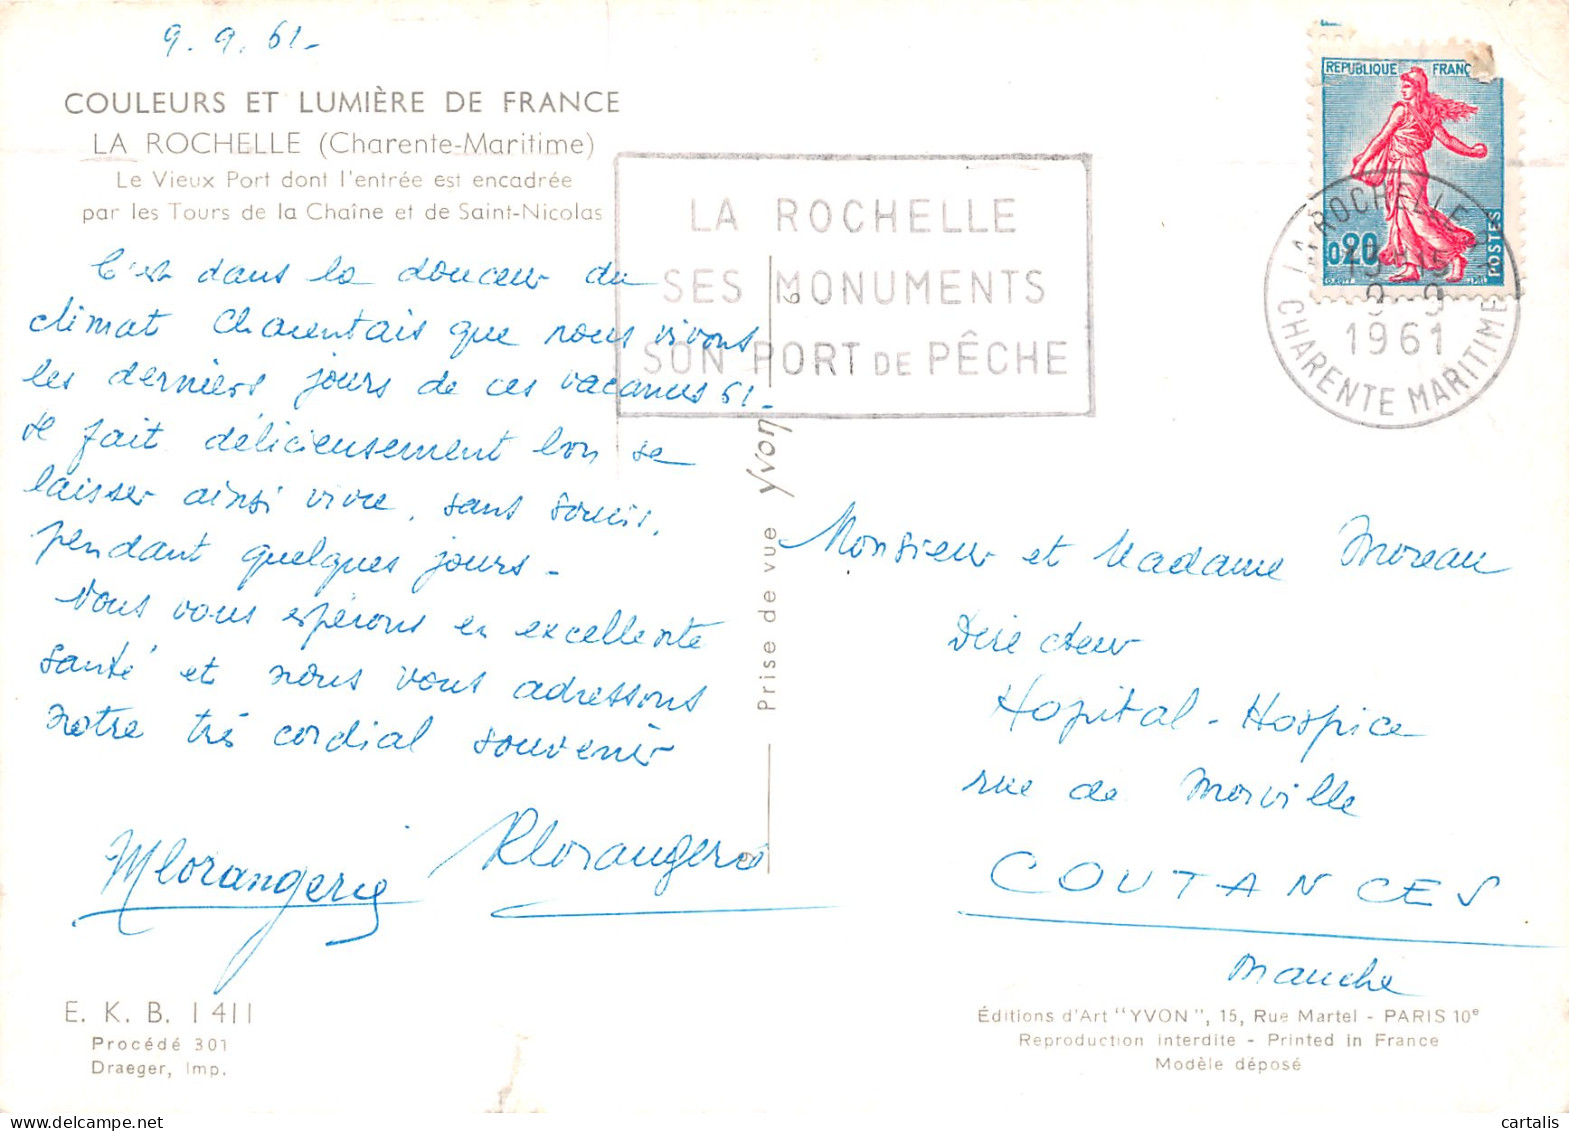 9.9.61-
COULEURS ET LUMIÈRE DE FRANCE
LA ROCHELLE (Charente-Maritime)
Le Vieux Port dont l'entrée est encadrée
par les Tours de la Chaîne et de Saint-Nicolas
C'est dans la douceur du
climat Charentais que nous vivons
les derniers jours de ces vacances 61-
Il fait délicieusement bon se
laisser ainsi vivre, sans soucis,
pendant quelques jours-
Nous vous espérons en excellente
santé et nous vous adressons
notre très cordial souvenir
Mlorangerie Rlorangerie
E. K. B. 1411
Procédé 301
Draeger, Imp.
LA ROCHELLE
SES MONUMENTS
SON PORT DE PÊCHE
Prise de vue Yvon
REPUBLIQUE FRANC
0,20
POSTES
LA ROCHELLE
9-9
1961
CHARENTE MARITIME
Monsieur et Madame Moreau
Directeur
Hopital-Hospice
rue de Morville
COUTANCES
Manche
Éditions d'Art "YVON", 15, Rue Martel - PARIS 10e
Reproduction interdite - Printed in France
Modèle déposé
cartalis